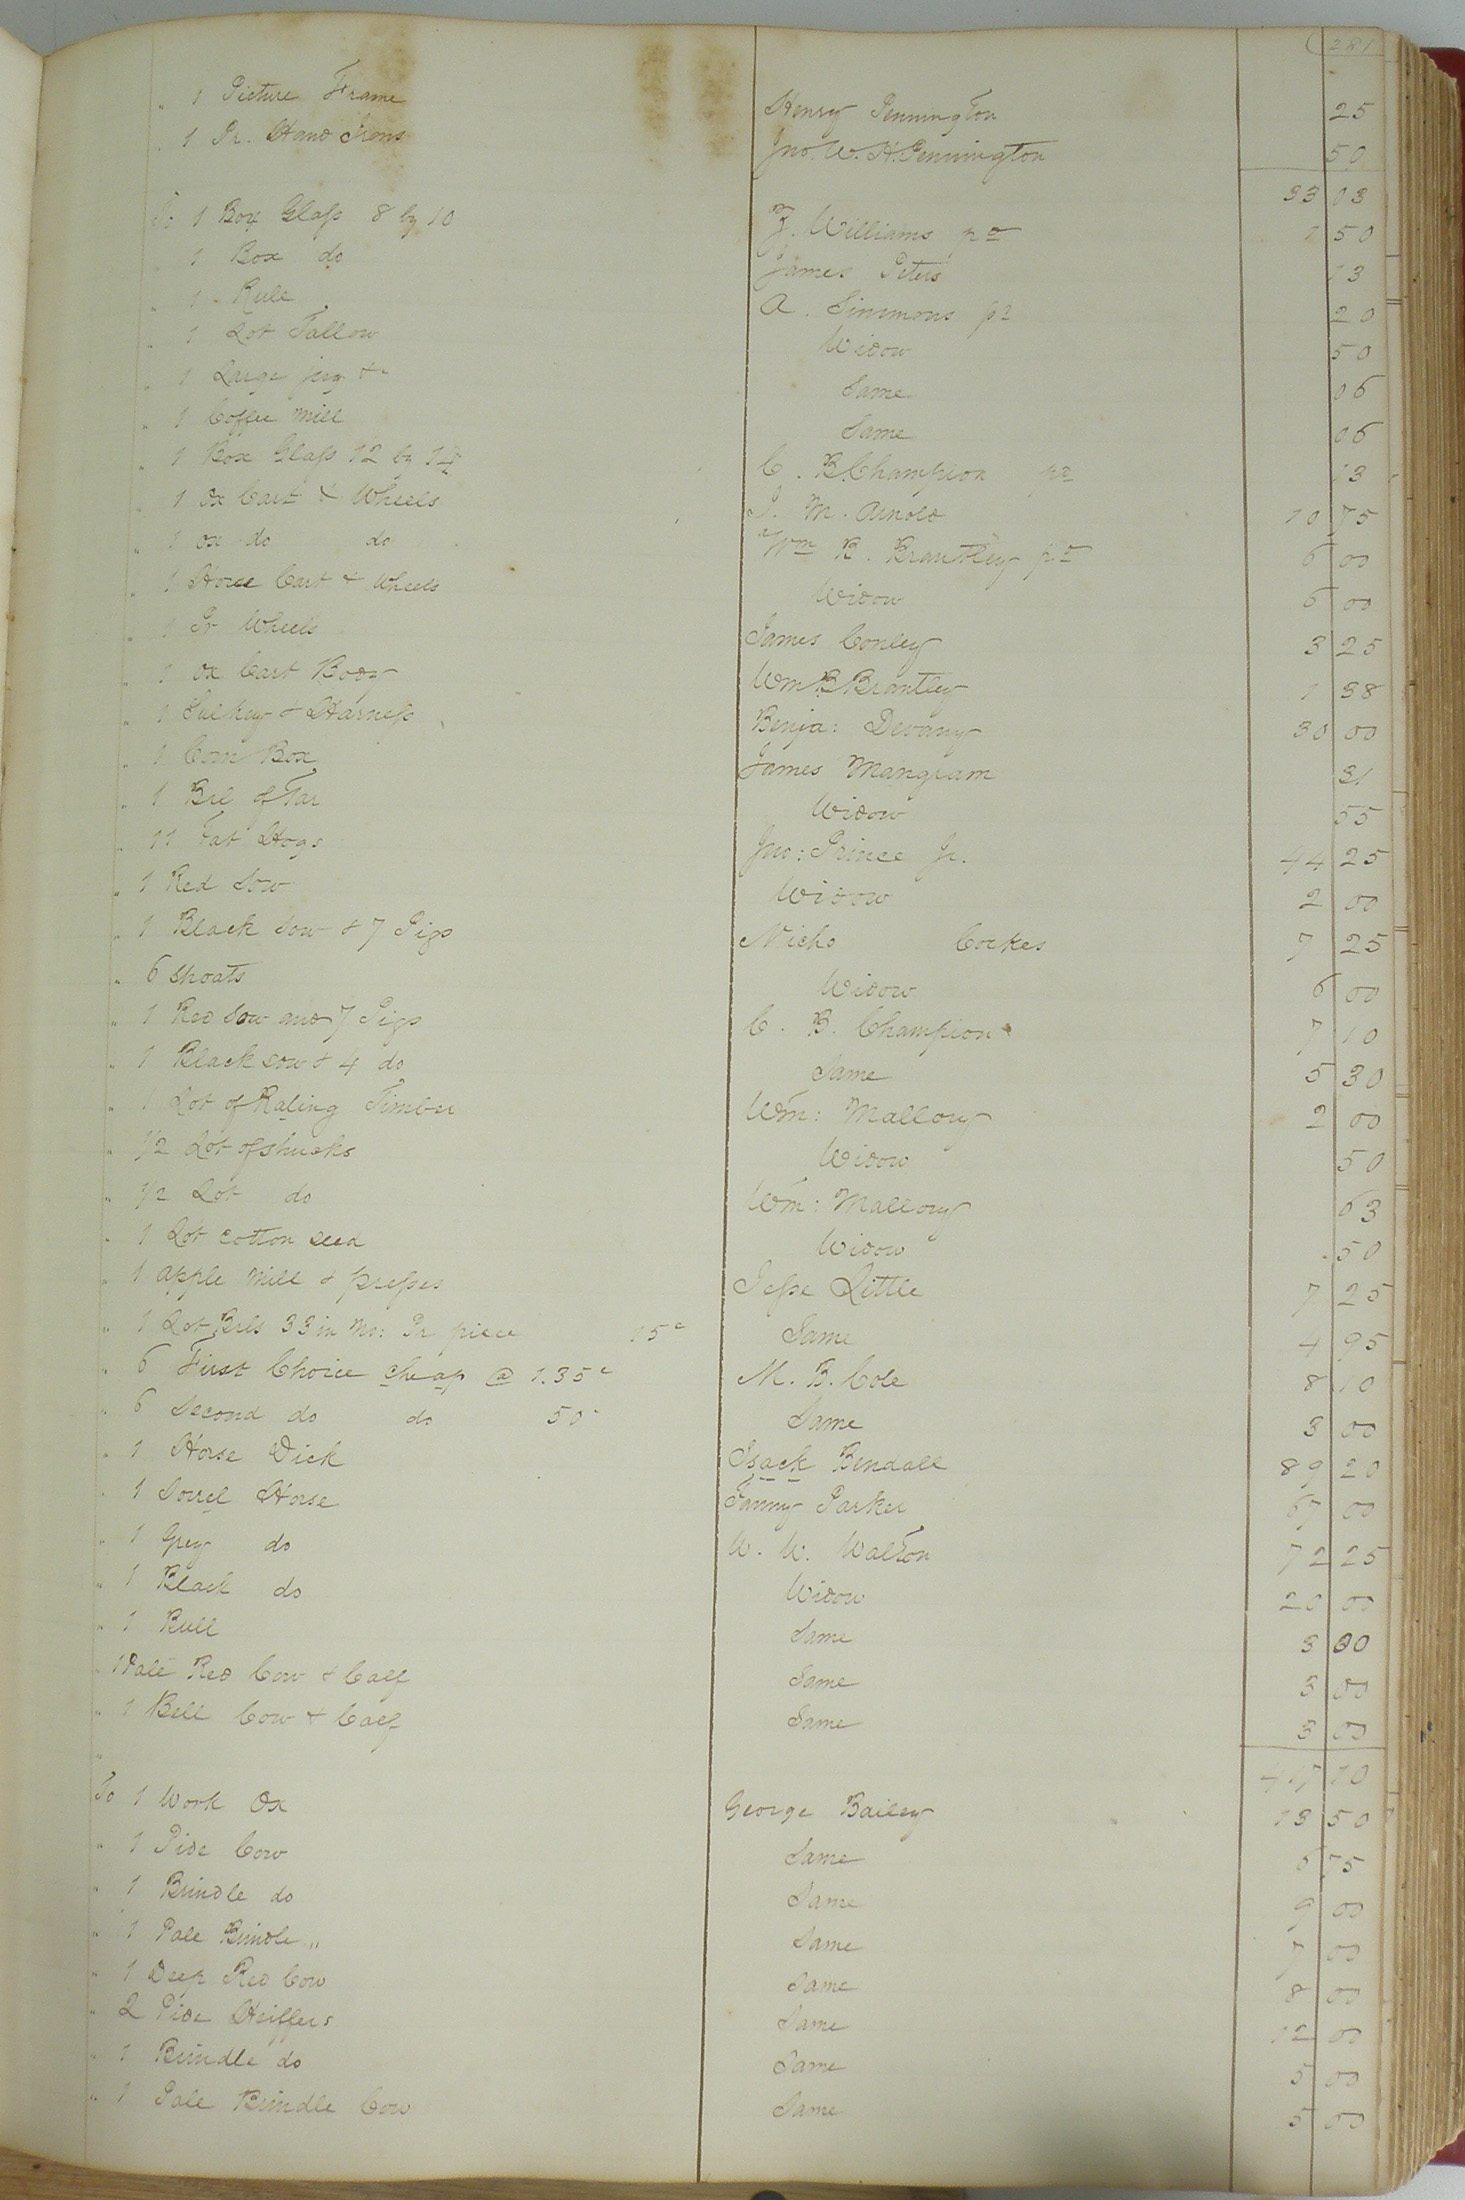 (281
" 1 Picture Frame Henry Pennington 25
" 1 Pr. Hand Irons Jno. W. H. Pennington 50
33 03
To 1 Box Glass 8 by 10 Z. Williams pd 1 50
" 1 Box do James Peters 13
" 1 Rule A. Simmons pd 20
" 1 Lot Tallow Widow 50
" 1 Large jug &c Same 06
" 1 Coffee Mill Same 06
" 1 Box Glass 12 by 14 C. B. Champion pd 13
" 1 Ox Cart & Wheels J. M. Arnold 10 75
" 1 ox do do Wm B. Brantley pd 6 00
" 1 Horse Cart & Wheels Widow 6 00
" 1 Pr Wheels James Conley 3 25
" 1 ox Cart Body Wm B Brantley 1 38
" 1 Sulkey & Harness Benja: Devany 30 00
" 1 Corn Box James Mangram 31
" 1 Brl of Tar Widow 55
" 11 Fat Hogs Jno: Prince Jr. 44 25
" 1 Red Sow Widow 2 00
" 1 Black Sow & 7 Pigs Nicho Cockes 7 25
" 6 Shoats Widow 6 00
" 1 Red Sow and 7 Pigs C. B. Champion 7 10
" 1 Black sow & 4 do Same 5 30
" 1 Lot of Raling Timber Wm: Mallory 2 00
" 1/2 Lot of shucks Widow 50
" 1/2 Lot do Wm: Mallory 63
" 1 Lot cotton seed Widow 50
" 1 apple Mill & presses Jesse Little 7 25
" 1 Lot Brls 33 in No: Pr piece 15c Same 4 95
" 6 First Choice cheap @ 1.35c M. B. Cole 8 10
" 6 Second do do 50" Same 3 00
" 1 Horse Dick Isack Bendall 89 20
" 1 Sorrel Horse Fanny Parker 67 00
" 1 Grey do W. W. Walton 72 25
" 1 Black do Widow 20 00
" 1 Bull Same 3 00
" 1 Pale Red Cow & Calf Same 3 00
" 1 Bell Cow & Calf Same 3 00
" 10
To 1 Work Ox George Bailey 13 50
" 1 Pide Cow Same 6 75
" 1 Brindle do Same 9 00
" 1 Pale Brindle " Same 7 00
" 1 Deep Red Cow Same 8 00
" 2 Pide Heiffers Same 12 00
" 1 Brindle do Same 5 00
" 1 Pale Brindle Cow Same 5 00